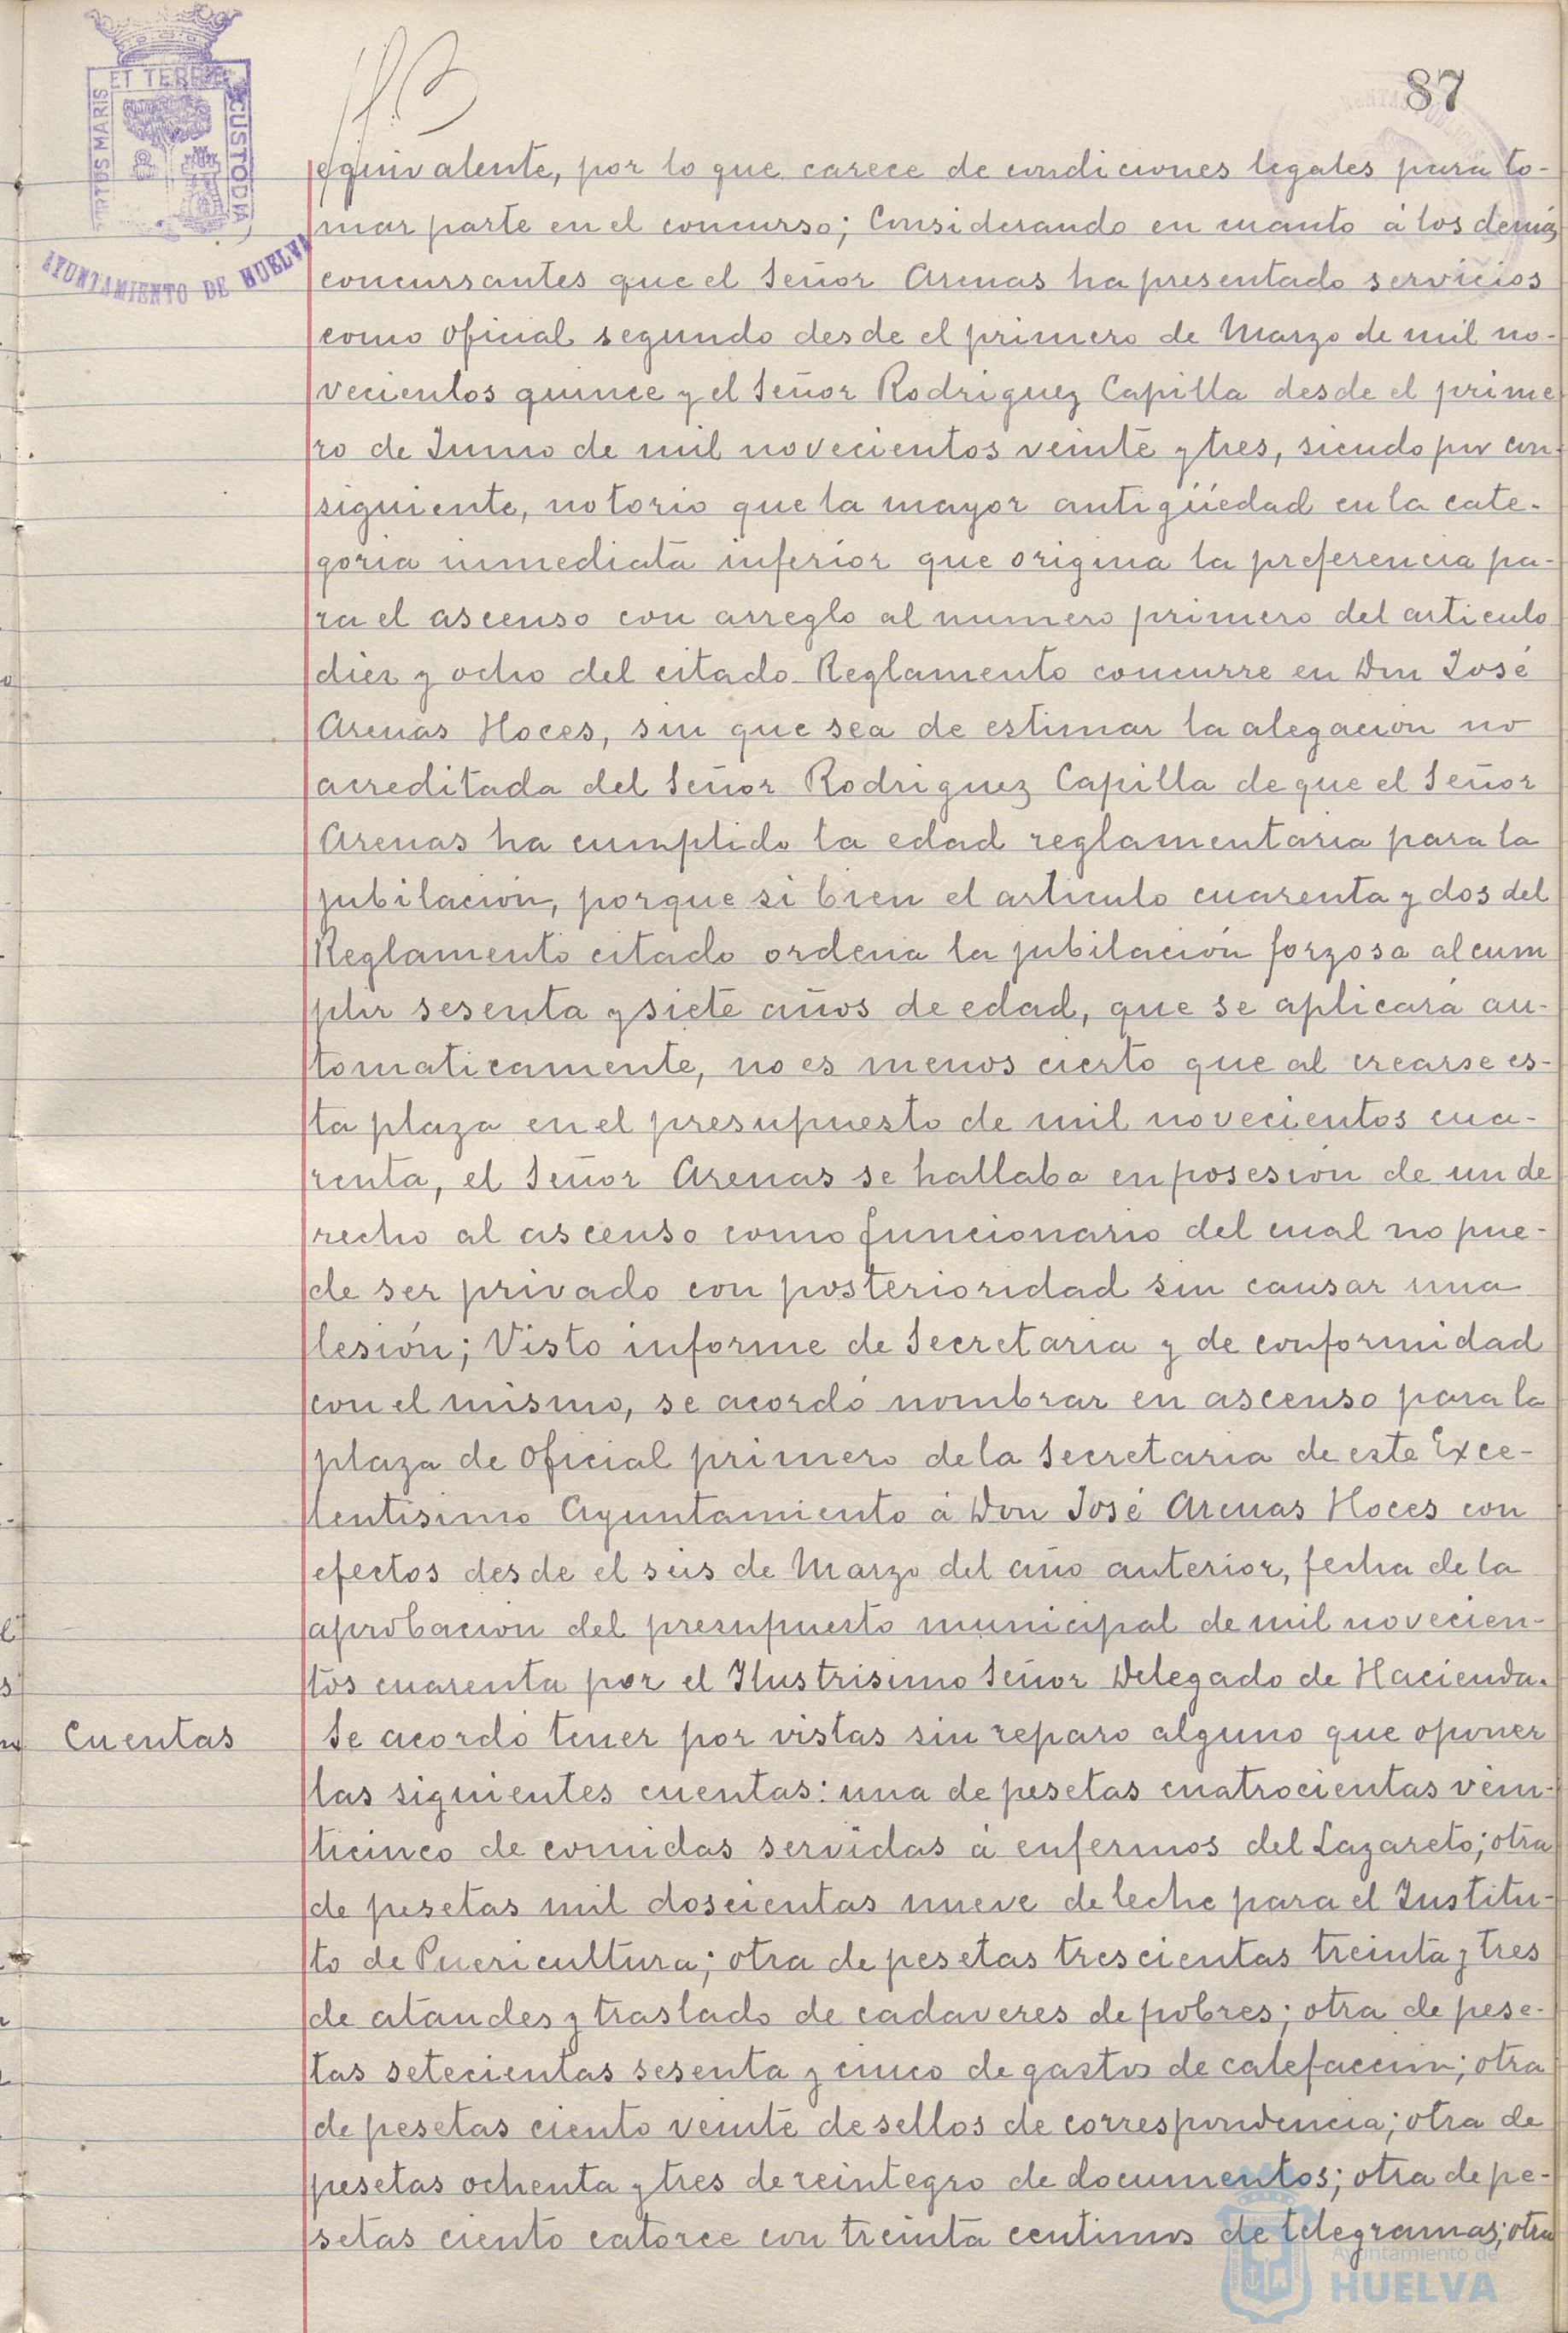 87
PORTUS MARIS ET TERRE CUSTODIA
AYUNTAMIENTO DE HUELVA
equivalente, por lo que carece de condiciones legales para to-
mar parte en el concurso; Considerando en cuanto á los demás
concursantes que el Señor Arenas ha presentado servicios
como oficial segundo desde el primero de Marzo de mil no-
vecientos quince y el Señor Rodriguez Capilla desde el prime
ro de Junio de mil novecientos veinte y tres, siendo por con-
siguiente, notorio que la mayor antigüedad en la cate-
goria inmediata inferior que origina la preferencia pa-
ra el ascenso con arreglo al numero primero del articulo
diez y ocho del citado Reglamento concurre en Don José
Arenas Hoces, sin que sea de estimar la alegación no
acreditada del Señor Rodriguez Capilla de que el Señor
Arenas ha cumplido la edad reglamentaria para la
jubilación, porque si bien el articulo cuarenta y dos del
Reglamento citado ordena la jubilación forzosa al cum
plir sesenta y siete años de edad, que se aplicará au-
tomaticamente, no es menos cierto que al crearse es-
ta plaza en el presupuesto de mil novecientos cua-
renta, el Señor Arenas se hallaba en posesión de un de
recho al ascenso como funcionario del cual no pue-
de ser privado con posterioridad sin causar una
lesión; Visto informe de Secretaria y de conformidad
con el mismo, se acordó nombrar en ascenso para la
plaza de oficial primero de la Secretaria de este Exce-
lentisimo Ayuntamiento á Don José Arenas Hoces con
efectos desde el seis de Marzo del año anterior, fecha de la
aprobación del presupuesto municipal de mil novecien-
tos cuarenta por el Ilustrisimo Señor Delegado de Hacienda.
Cuentas Se acordó tener por vistas sin reparo alguno que oponer
las siguientes cuentas: una de pesetas cuatrocientas vein-
ticinco de comidas servidas á enfermos del Lazareto; otra
de pesetas mil doscientas nueve de leche para el Institu-
to de Puericultura; otra de pesetas trescientas treinta y tres
de ataudes y traslado de cadaveres de pobres; otra de pese-
tas setecientas sesenta y cinco de gastos de calefacción; otra
de pesetas ciento veinte de sellos de correspondencia; otra de
pesetas ochenta y tres de reintegro de documentos; otra de pe-
setas ciento catorce con treinta centimos de telegramas; otra
Ayuntamiento de
HUELVA